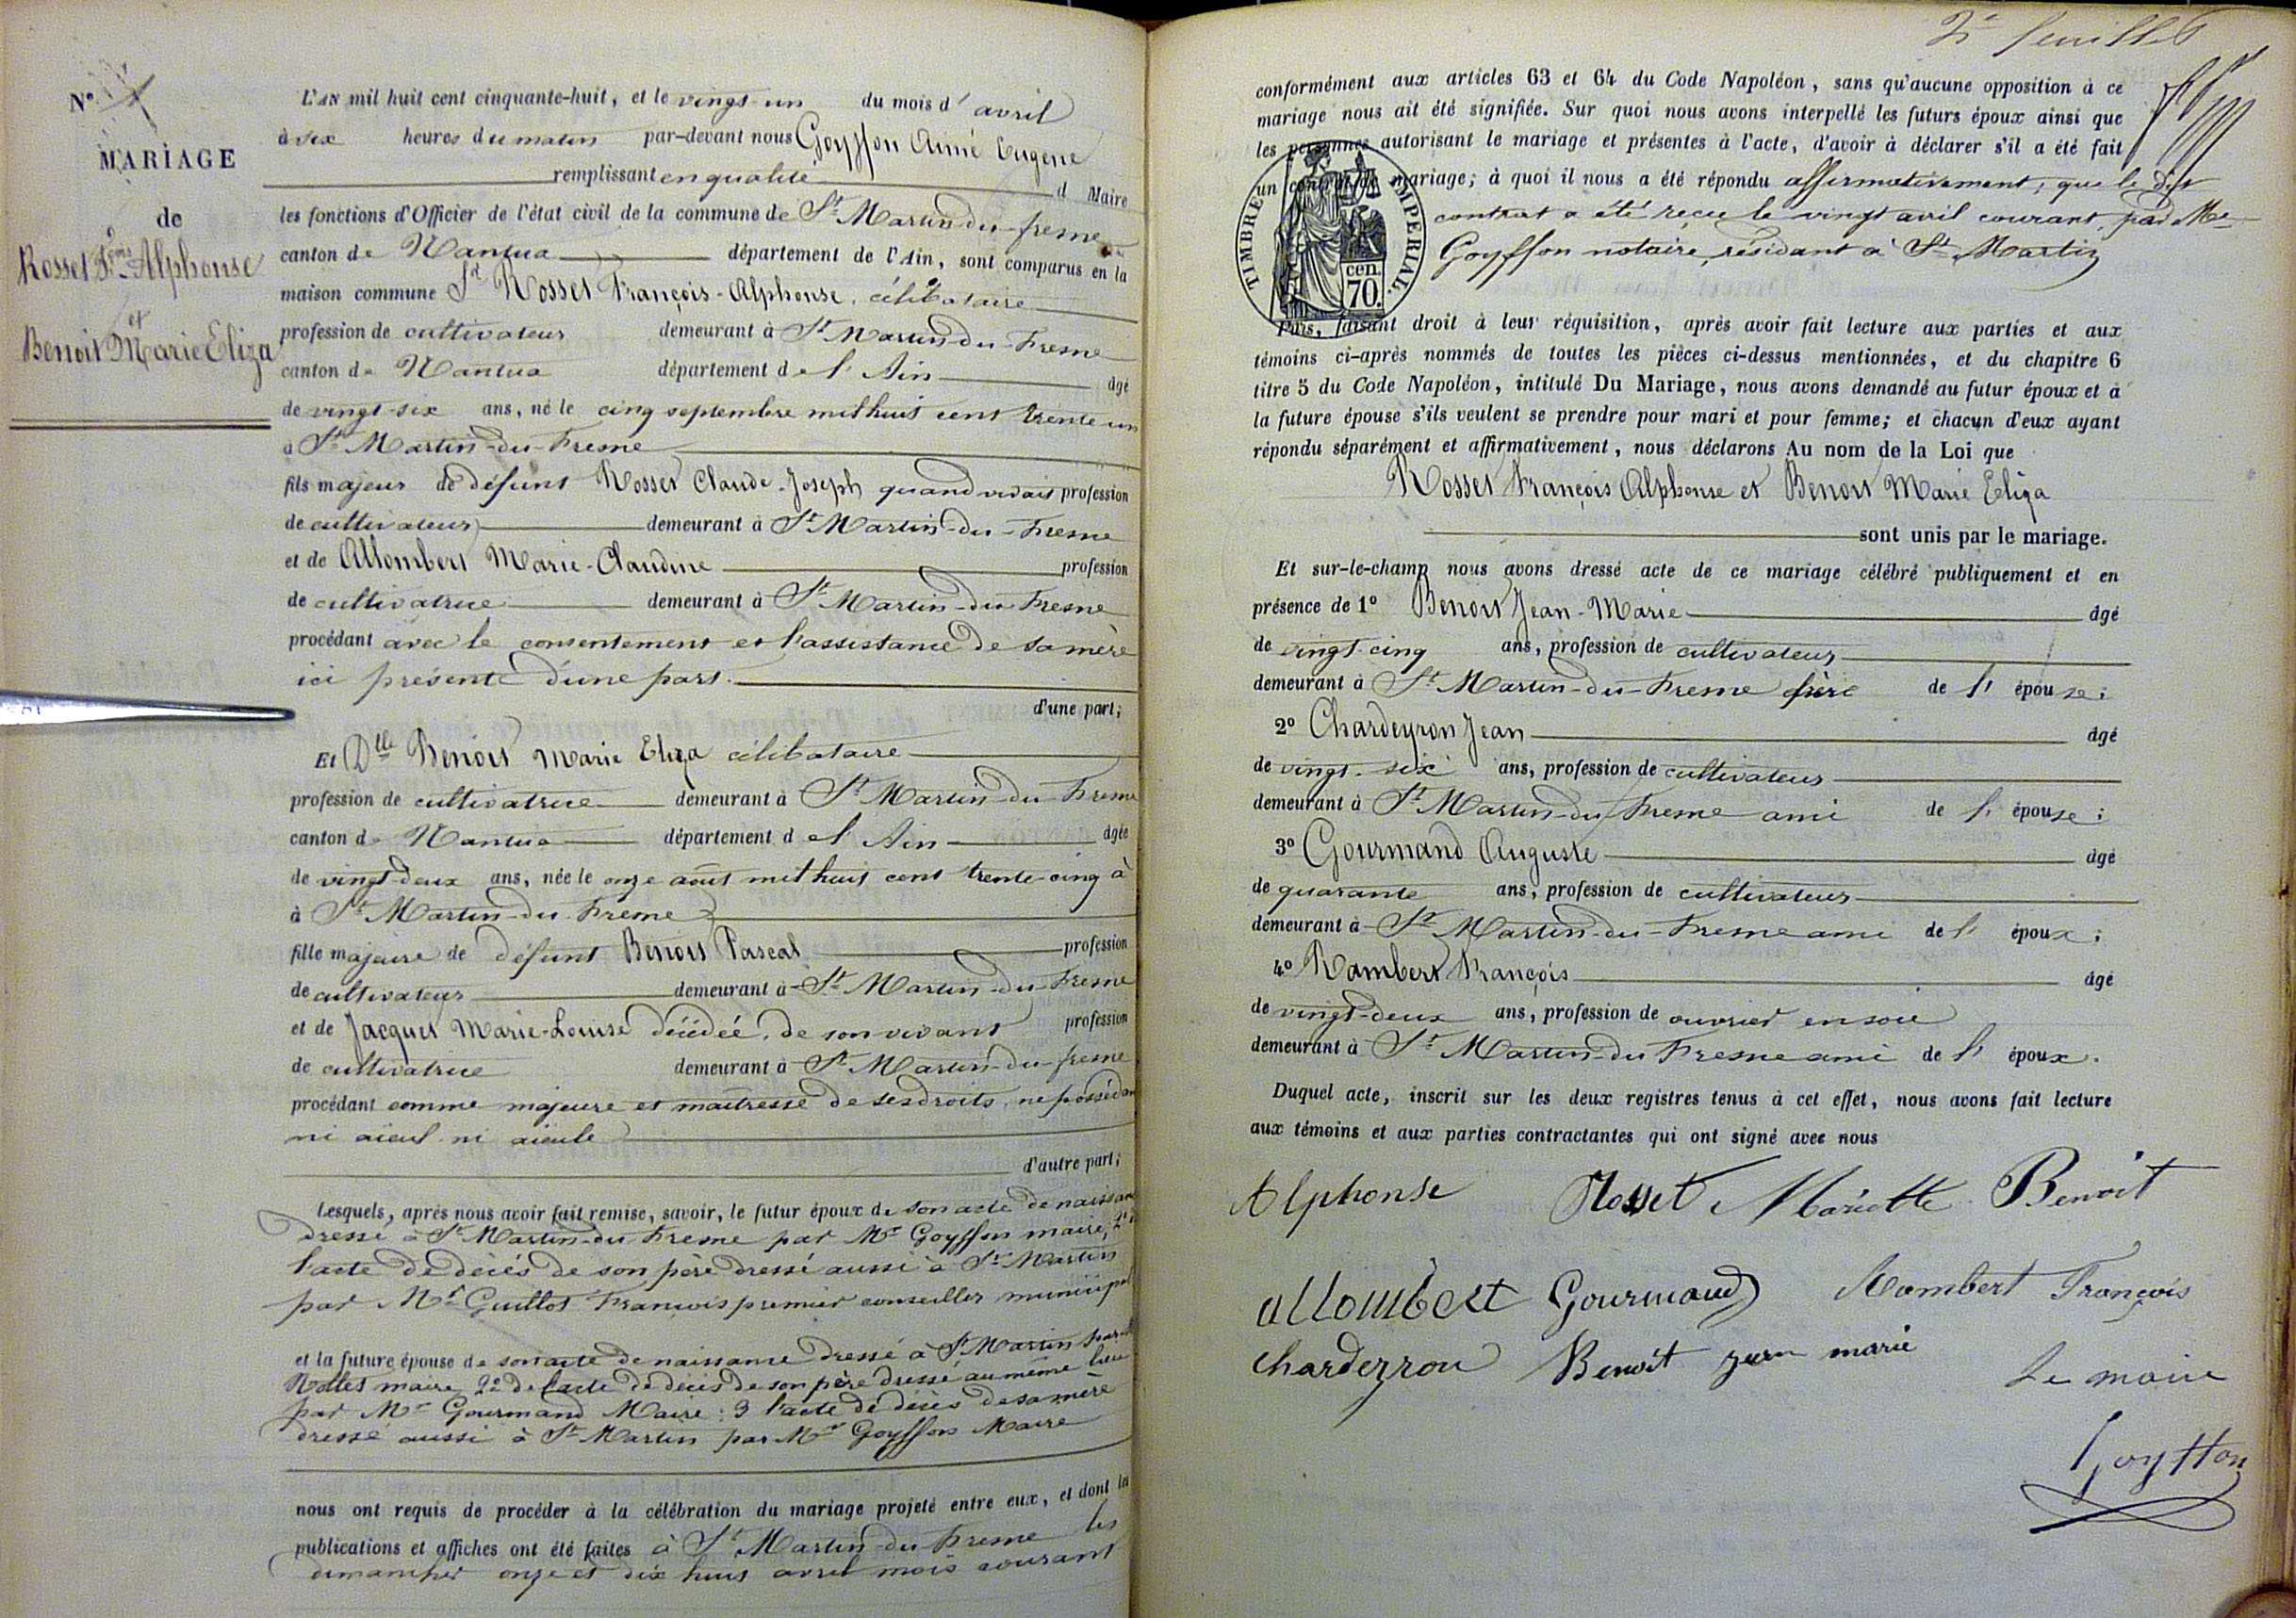 N°
MARIAGE
de
Rosset F.çois Alphonse
et
Benoit Marie Eliza
L'AN mil huit cent cinquante-huit, et le vingt-un du mois d' avril
à six heures du matin par-devant nous Goyffon Aimé Eugene
remplissant en qualité d Maire
les fonctions d'Officier de l'état civil de la commune de St Martin-du-fresne
canton de Nantua département de l'Ain, sont comparus en la
maison commune Sr Rosset François-Alphonse, célibataire
profession de cultivateur demeurant à St Martin-du-Fresne
canton de Nantua département de l'Ain âgé
de vingt-six ans, né le cinq septembre mil huit cent trente un
à St Martin-du-Fresne
fils majeur de défunt Rosset Claude-Joseph quand vivait profession
de cultivateur demeurant à St Martin-du-Fresne
et de Allombert Marie-Claudine profession
de cultivatrice demeurant à St Martin-du-Fresne
procédant avec le consentement et l'assistance de sa mère
ici présente d'une part.
d'une part;
Et Dlle Benoit Marie Eliza célibataire
profession de cultivatrice demeurant à St Martin-du-Fresne
canton de Nantua département de l'Ain âgée
de vingt-deux ans, née le onze août mil huit cent trente-cinq à
à St Martin-du-Fresne
fille majeure de défunt Benoit Pascal profession
de cultivateur demeurant à St Martin-du-Fresne
et de Jacquet Marie-Louise décédée, de son vivant profession
de cultivatrice demeurant à St Martin-du-fresne
procédant comme majeure et maîtresse de ses droits, ne possédan
ni aïeul ni aïeule
d'autre part;
Lesquels, après nous avoir fait remise, savoir, le futur époux de son acte de naissan
dressé à St Martin-du-Fresne par Mr Goyffon maire, 2°
l'acte de décés de son père dressé aussi à St Martin
par Mr Guillot François premier conseiller municipal
et la future épouse de son acte de naissance dressé à St Martin par
maire 2° de l'acte de décés de son père dressé au même lieu
par Mr Gourmand Maire: 3 l'acte de décés de sa mère
dressé aussi à St Martin par Mr Goyffon Maire
nous ont requis de procéder à la célébration du mariage projeté entre eux, et dont les
publications et affiches ont été faites à St Martin-du-Fresne les
dimanches onze et dix huit avril mois courant
2e feuillet
conformément aux articles 63 et 64 du Code Napoléon, sans qu'aucune opposition à ce
mariage nous ait été signifiée. Sur quoi nous avons interpellé les futurs époux ainsi que
les personnes autorisant le mariage et présentes à l'acte, d'avoir à déclarer s'il a été fait
un contrat de mariage; à quoi il nous a été répondu affirmativement, que le dit
contrat a été reçu le vingt avril courant, par Me
Goyffon notaire, résidant à St Martin
TIMBRE IMPERIAL.
cen.
70.
Puis, faisant droit à leur réquisition, après avoir fait lecture aux parties et aux
témoins ci-après nommés de toutes les pièces ci-dessus mentionnées, et du chapitre 6
titre 5 du Code Napoléon, intitulé Du Mariage, nous avons demandé au futur époux et à
la future épouse s'ils veulent se prendre pour mari et pour femme; et chacun d'eux ayant
répondu séparément et affirmativement, nous déclarons Au nom de la Loi que
Rosset François Alphonse et Benoit Marie Eliza
sont unis par le mariage.
Et sur-le-champ nous avons dressé acte de ce mariage célébré publiquement et en
présence de 1° Benoit Jean-Marie âgé
de vingt-cinq ans, profession de cultivateur
demeurant à St Martin-du-Fresne frère de l' épouse;
2° Chardeyron Jean âgé
de vingt-six ans, profession de cultivateur
demeurant à St Martin-du-Fresne ami de l' épouse;
3° Gourmand Auguste âgé
de quarante ans, profession de cultivateur
demeurant à St Martin-du-Fresne ami de l' époux;
4° Rambert François âgé
de vingt-deux ans, profession de ouvrier en soie
demeurant à St Martin-du-Fresne ami de l' époux.
Duquel acte, inscrit sur les deux registres tenus à cet effet, nous avons fait lecture
aux témoins et aux parties contractantes qui ont signé avec nous
Alphonse Rosset Mariette Benoit
allombert Gourmand Rambert François
Charderron Benoit jean marie
Le maire
Goyffon